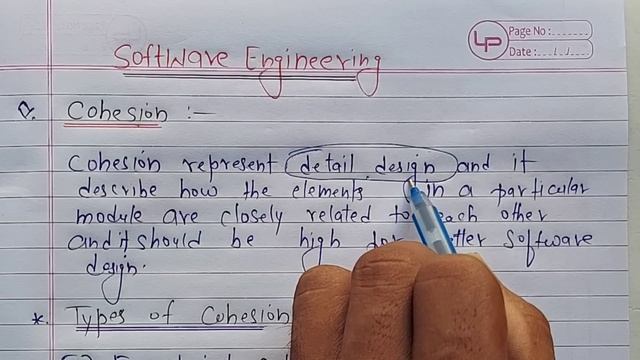 LP Page No:
Date:
Software Engineering
Q. Cohesion :-
Cohesion represent detail design and it
describe how the elements in a particular
module are closely related to each other
and it should be high for better software
design.
*. Types of Cohesion